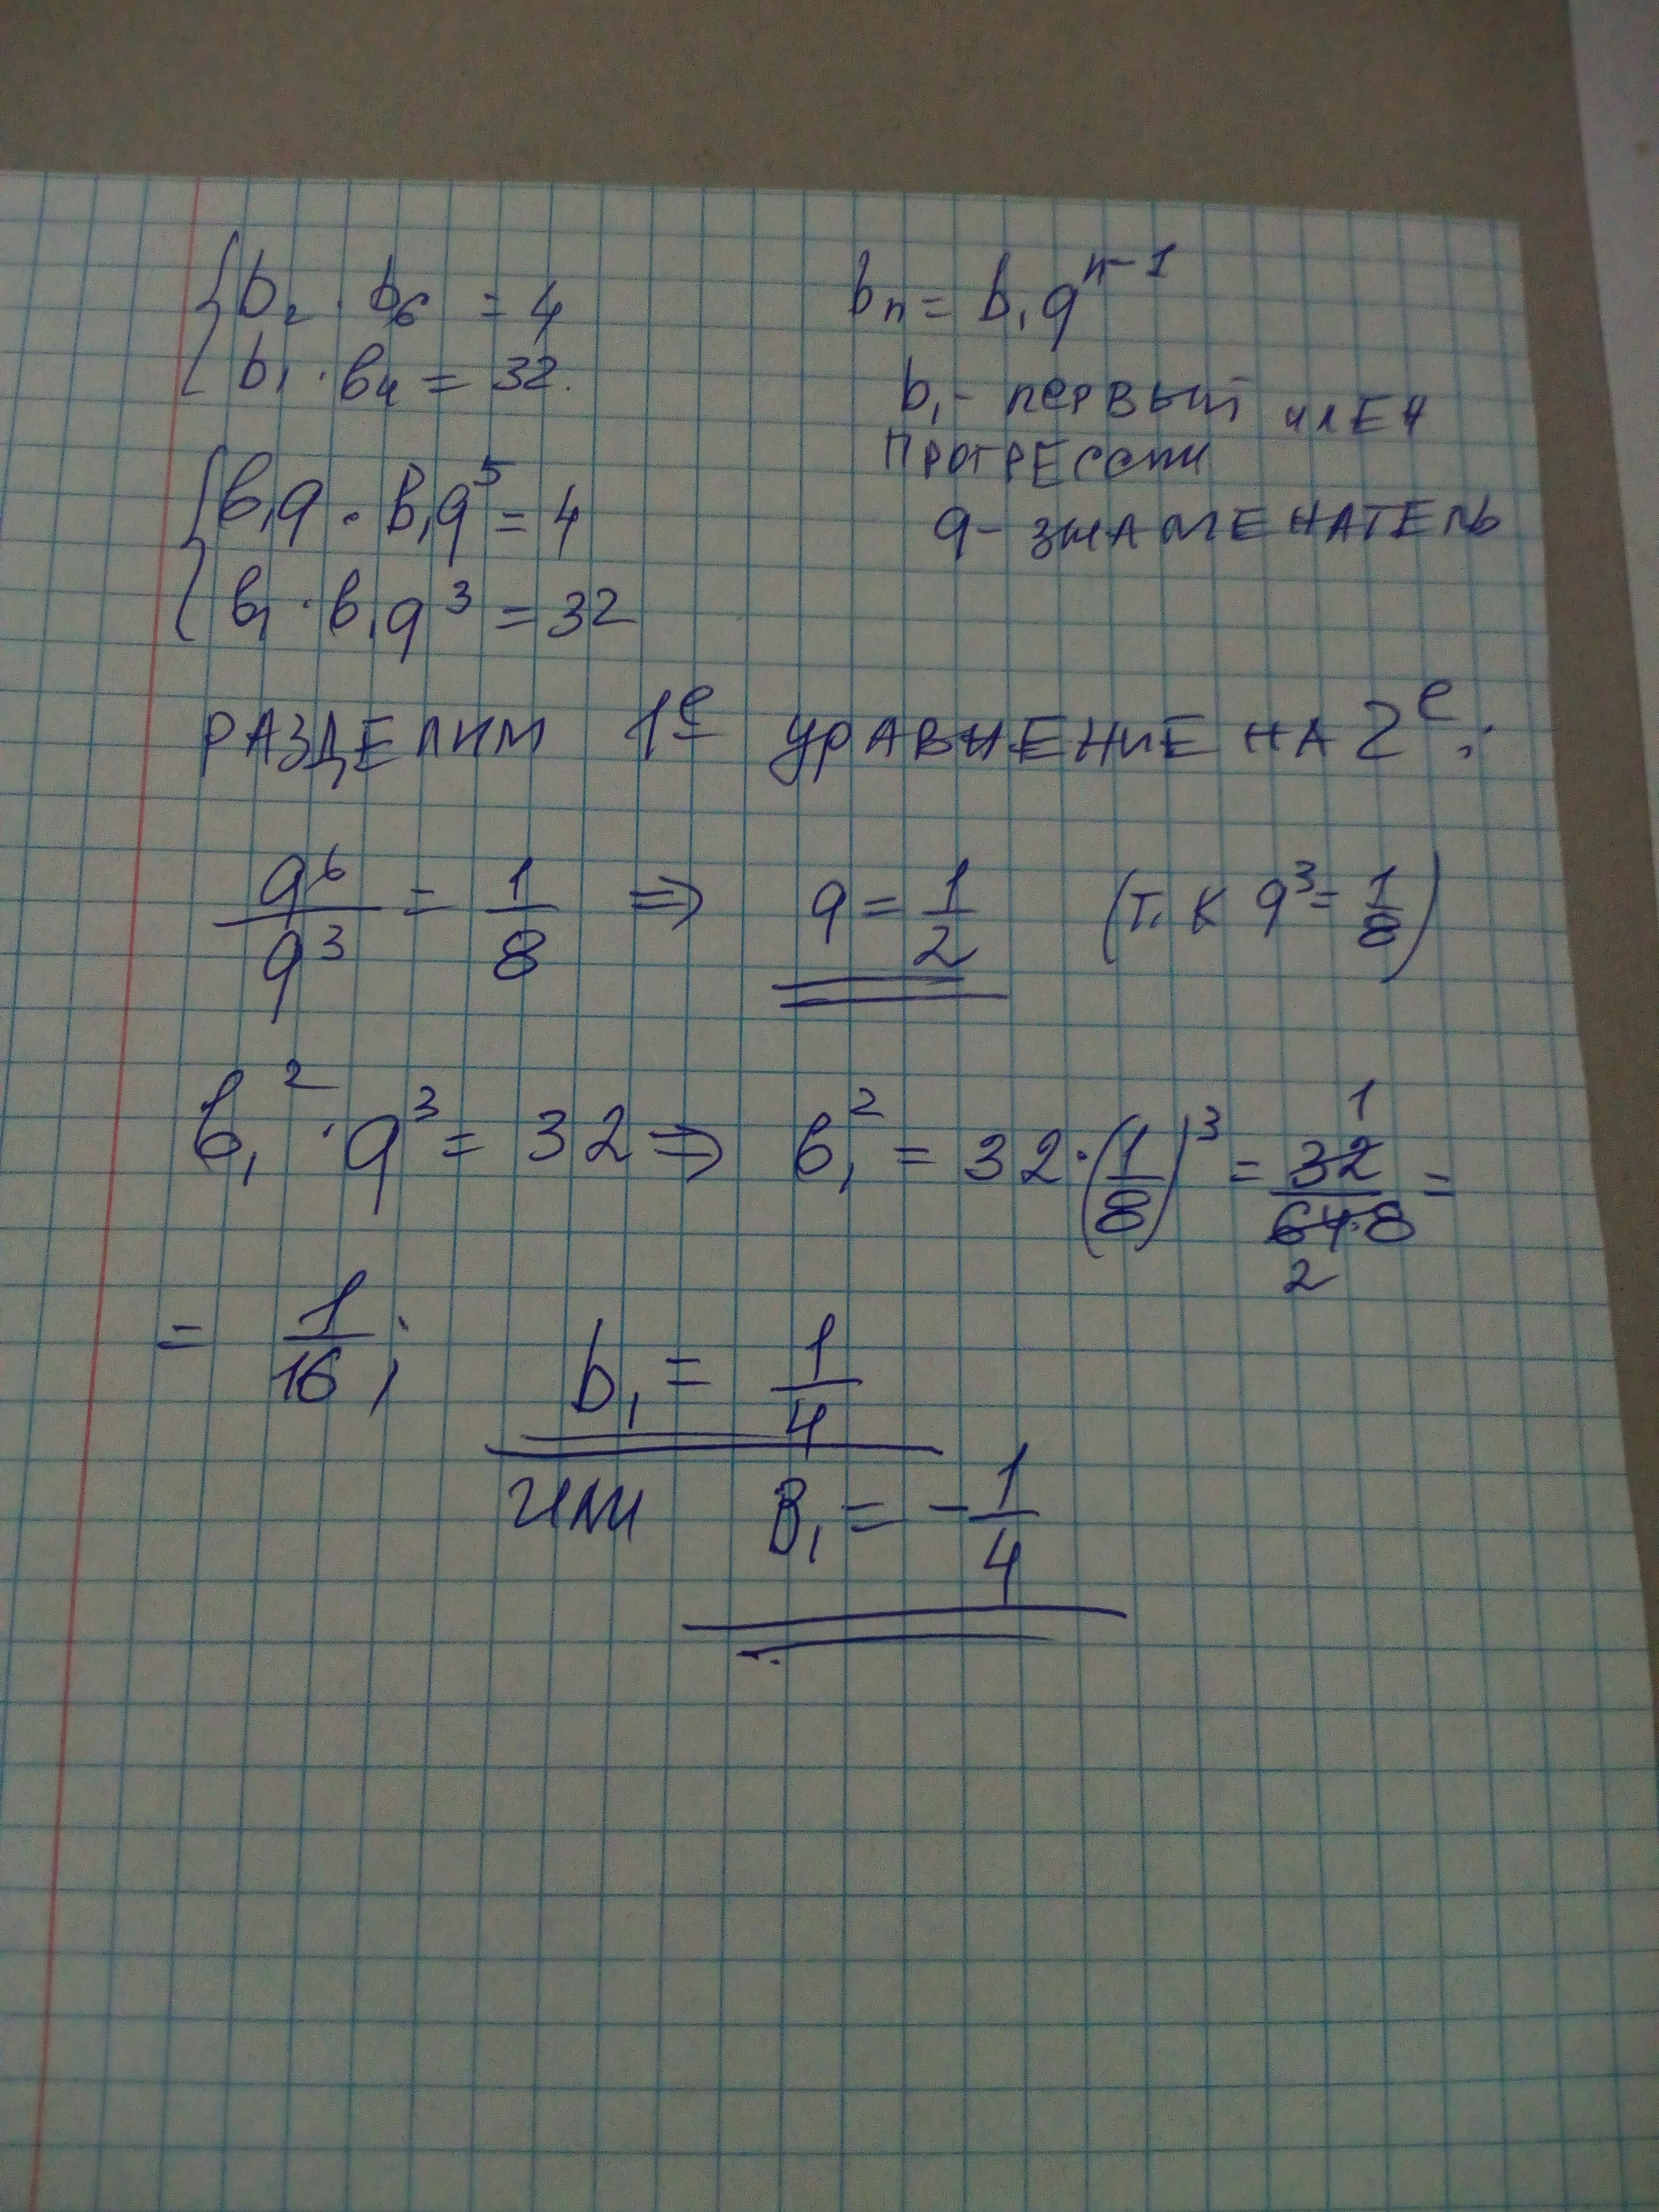 {b₂ · b₆ = 4
{b₁ · b₄ = 32.
bₙ = b₁qⁿ⁻¹
b₁ - первый член
прогрессии
q - знаменатель
{b₁q · b₁q⁵ = 4
{b₁ · b₁q³ = 32
РАЗДЕЛИМ 1ᵉ УРАВНЕНИЕ НА 2ᵉ:
q⁶/q³ = 1/8 ⇒ q = 1/2 (т.к q³ = 1/8)
b₁² · q³ = 32 ⇒ b₁² = 32 · (1/8)³ = 32/64·8 =
1
2
= 1/16; b₁ = 1/4
или b₁ = -1/4